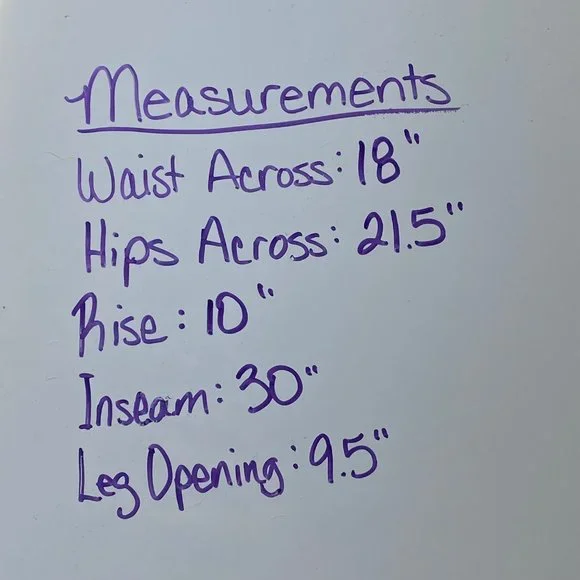 Measurements
Waist Across: 18"
Hips Across: 21.5"
Rise: 10"
Inseam: 30"
Leg Opening: 9.5"